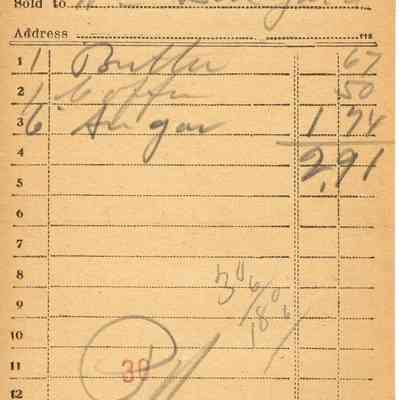 Sold to
Address
1 1 Butter 67
2 1 Coffee 50
3 6 Sugar 1 74
4 2.91
5
6
7
8
9
10
11 30
12